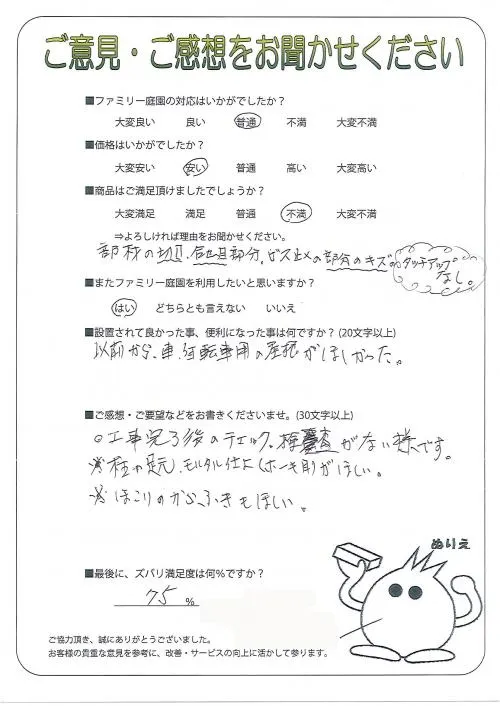 ご意見・ご感想をお聞かせください
■ファミリー庭園の対応はいかがでしたか？
大変良い 良い 普通 不満 大変不満
■価格はいかがでしたか？
大変安い 安い 普通 高い 大変高い
■商品はご満足頂けましたでしょうか？
大変満足 満足 普通 不満 大変不満
⇒よろしければ理由をお聞かせください。
部材の切 部分、ビス止メの部分のキズのタッチアップ
なし。
■またファミリー庭園を利用したいと思いますか？
はい どちらとも言えない いいえ
■設置されて良かった事、便利になった事は何ですか？(20文字以上)
以前から、車、自転車用の屋根がほしかった。
■ご感想・ご要望などをお書きくださいませ。(30文字以上)
○工事完了後のチェック、検査がない様です。
※柱の足元、モルタル仕上（ホーキ刷）がほしい。
※ほこりのからふきもほしい。
ぬりえ
■最後に、ズバリ満足度は何%ですか？
75 %
ご協力頂き、誠にありがとうございました。
お客様の貴重な意見を参考に、改善・サービスの向上に活かして参ります。